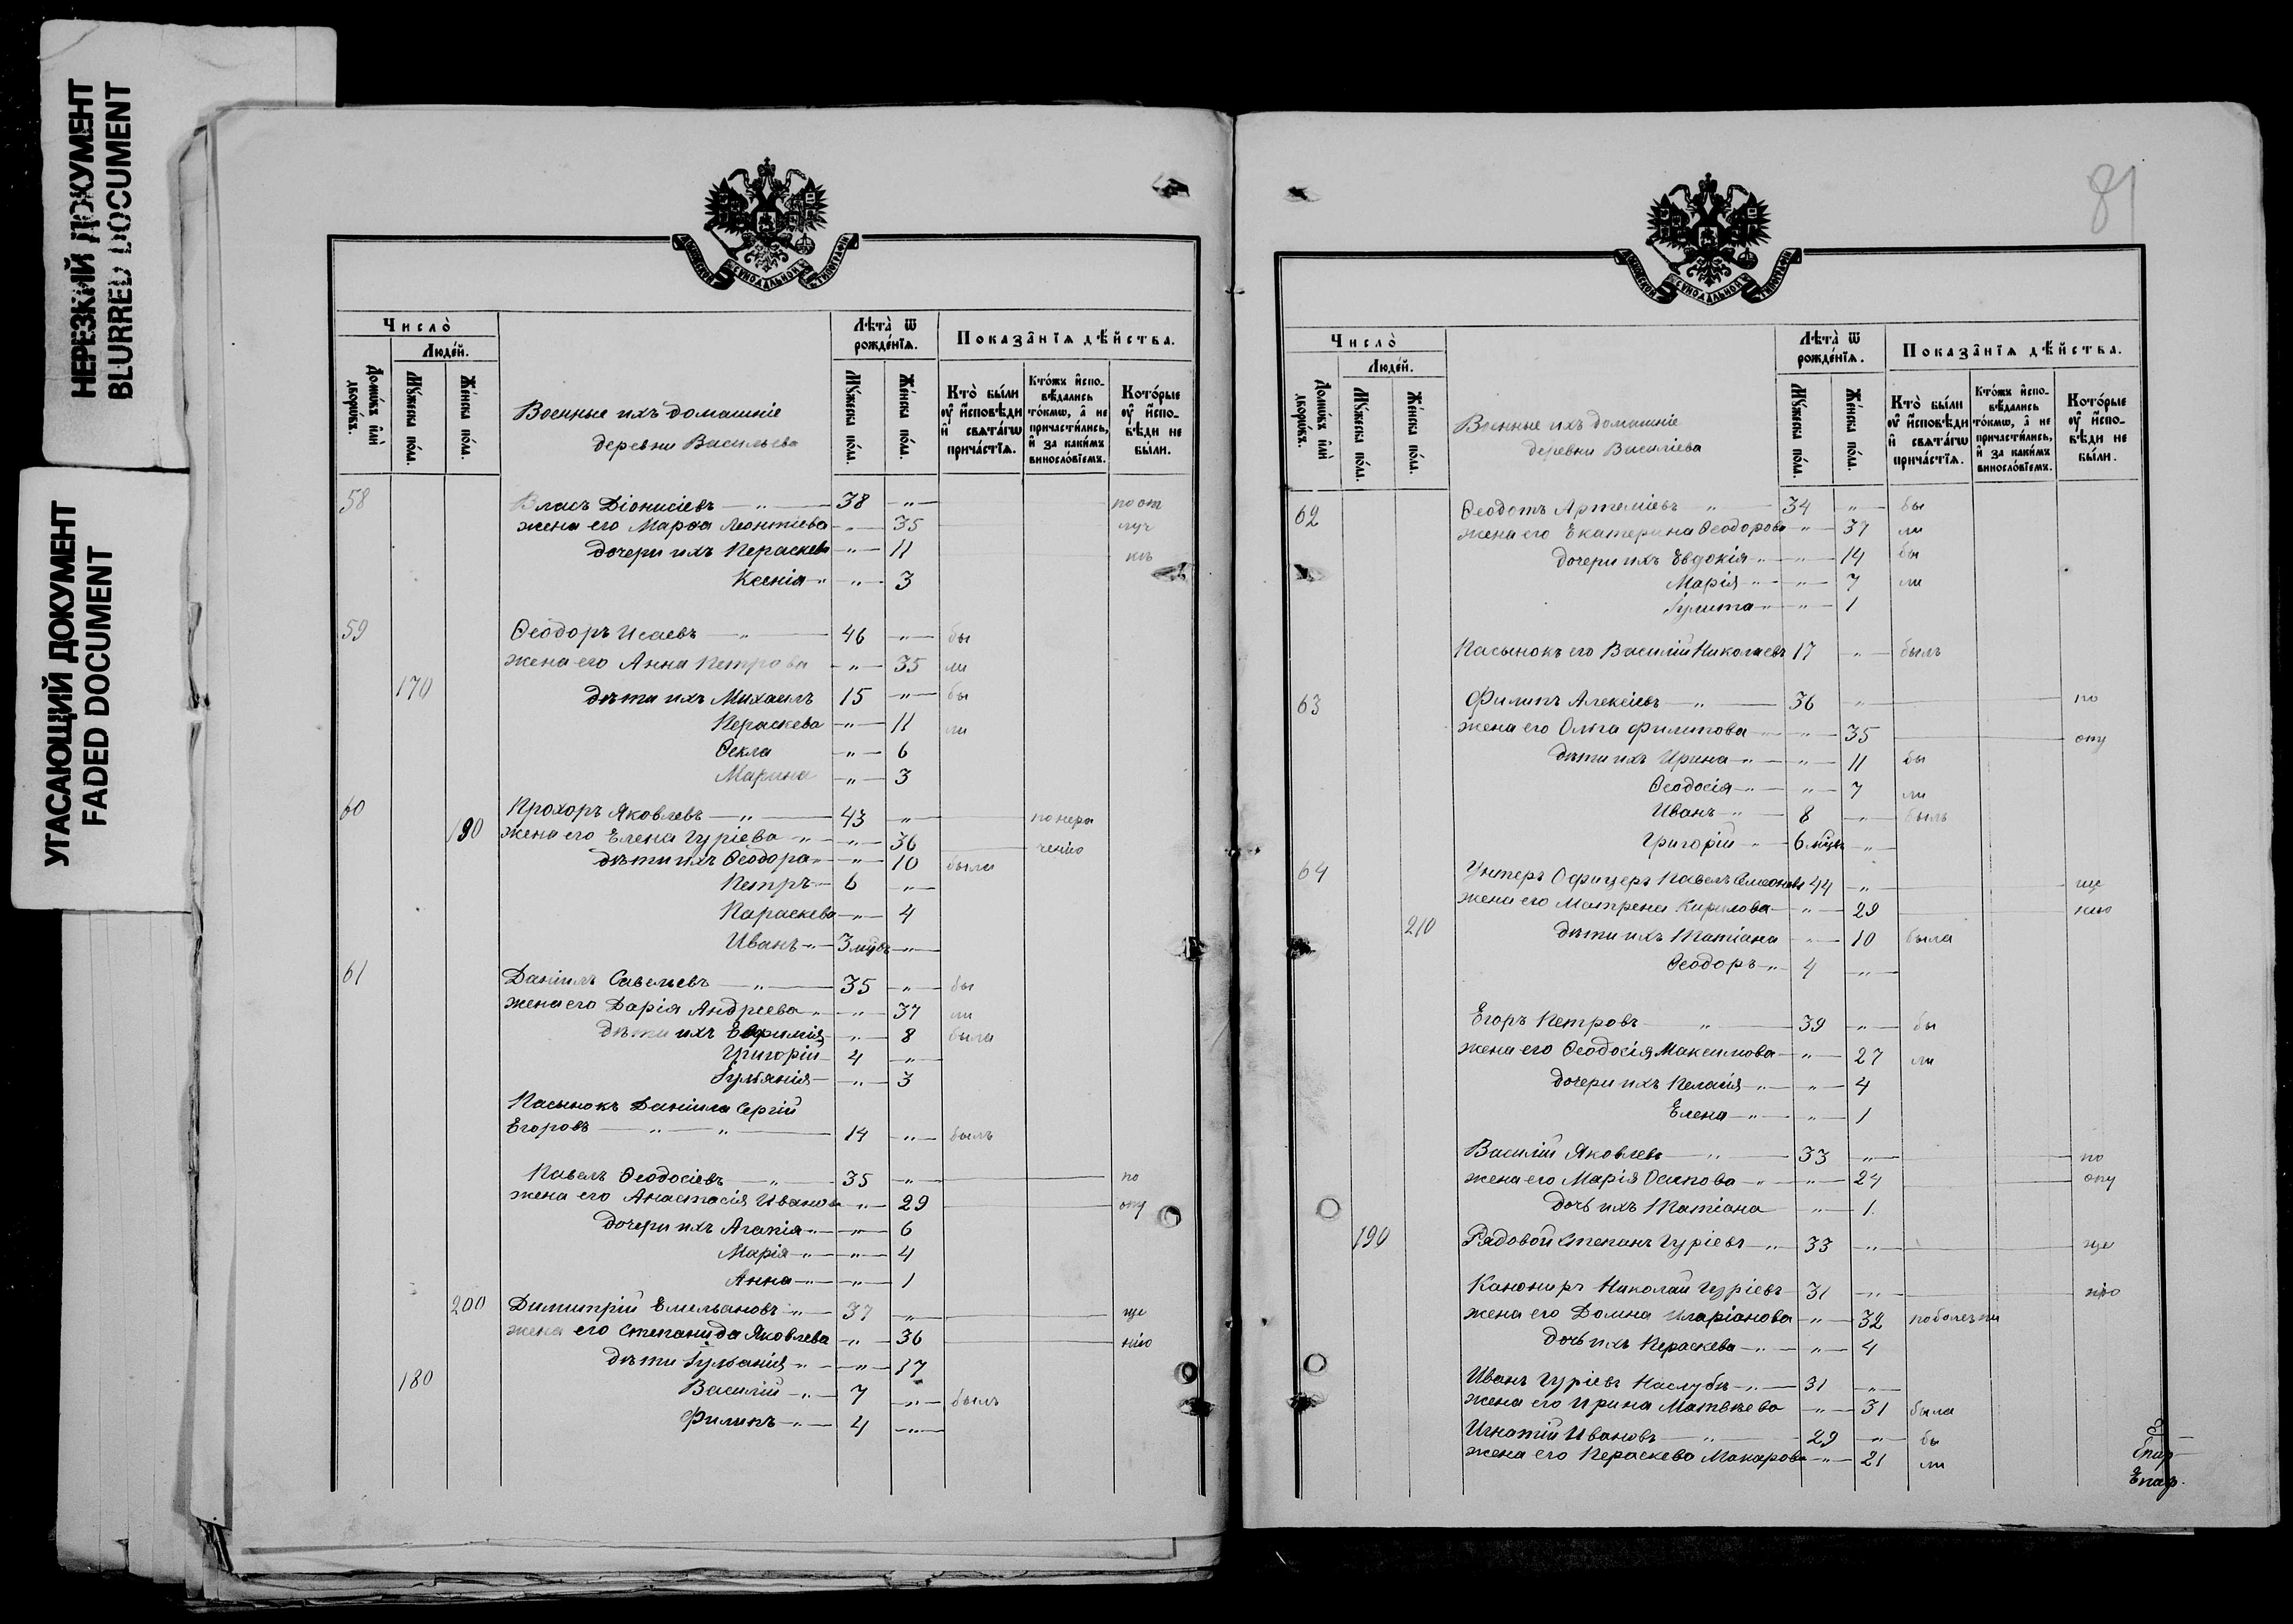 НЕРЕЗКИЙ ДОКУМЕНТ
BLURRED DOCUMENT
УГАСАЮЩИЙ ДОКУМЕНТ
FADED DOCUMENT
МОСКОВСКОЙ СѴНОДАЛЬНОЙ ТИПОГРАФІИ
Число̀
Людéй.
Домѡ́въ и҆лѝ дворѡ́въ.
Мꙋ́жеска по́ла.
Же́нска по́ла.
Военные ихъ домашніе
деревни Васильева
Лѣ́та ѿ рожде́нїѧ.
Мꙋ́жеска по́ла.
Же́нска по́ла.
Показа̑нїѧ дѣ́йства.
Кто̀ бы́ли оу҆ и҆сповѣди и҆ свѧта́гѡ прича́стїѧ.
Кто́жъ и҆спо- вѣдались то́кмѡ, а҆ не причасти́лись, и҆ за каки́мъ виносло́вїемъ.
Кото́рые оу҆ и҆спо- вѣди не бы́ли.
58 Власъ Діонисіевъ — „ — 38 — „ — по от
жена его Марѳа Леонтіева — „ — 35 луч
дочери ихъ Пераскева — „ — 11 кѣ
Ксенія „ — „ — 3
59 Ѳеодоръ Исаевъ — „ — 46 — „ — бы
жена его Анна Петрова — „ — 35 ли
170 дѣти ихъ Михаилъ 15 — „ — бы
Пераскева — „ — 11 ли
Ѳекла — „ — 6
Марина — „ — 3
60 Прохоръ Яковлевъ — „ — 43 — „ — по нера
190 жена его Елена Гуріева „ — „ — 36 ченію
дѣти ихъ Ѳеодора „ — „ — 10 была
Петръ — 6 — „ —
Параскева — „ — 4
Иванъ „ — 3 мцвъ — „ —
61 Даніилъ Савельевъ — „ — 35 — „ — бы
жена его Дарія Андреева „ — „ — 37 ли
дѣти ихъ Евфимія — „ — 8 была
Григорій — 4 — „ —
Іуліанія — „ — 3
Пасынокъ Даніила Сергій
Егоровъ — „ — „ — 14 — „ — былъ
Павелъ Ѳеодосіевъ — „ — 35 — „ — по
жена его Анастасія Иванова — „ — 29 опу
дочери ихъ Агапія „ — „ — 6
Марія — „ — „ — 4
Анна — „ — „ — 1
200 Димитрій Емельяновъ „ — 37 — „ — ще
жена его Степанида Яковлева — „ — 36 нію
дѣти Іуліанія „ — „ — 17
180 Василій — „ — 7 — „ — былъ
Филипъ — „ — 4 — „ —
81
МОСКОВСКОЙ СѴНОДАЛЬНОЙ ТИПОГРАФІИ
Число̀
Людéй.
Домѡ́въ и҆лѝ дворѡ́въ.
Мꙋ́жеска по́ла.
Же́нска по́ла.
Военные ихъ домашніе
деревни Василіева
Лѣ́та ѿ рожде́нїѧ.
Мꙋ́жеска по́ла.
Же́нска по́ла.
Показа̑нїѧ дѣ́йства.
Кто̀ бы́ли оу҆ и҆сповѣди и҆ свѧта́гѡ прича́стїѧ.
Кто́жъ и҆спо- вѣдались то́кмѡ, а҆ не причасти́лись, и҆ за каки́мъ виносло́вїемъ.
Кото́рые оу҆ и҆спо- вѣди не бы́ли.
62 Ѳеодотъ Артеміевъ — „ — 34 — „ — бы
жена его Екатерина Ѳеодорова — „ — 37 ли
дочери ихъ Евдокія „ — „ — 14 бы
Марія „ — „ — 7 ли
Іулита „ — „ — 1
Пасынокъ его Василій Николаевъ 17 — „ — былъ
63 Филипъ Алексіевъ — „ — 36 — „ — по
жена его Ольга Филипова — „ — 35 опу
дѣти ихъ Ирина „ — „ — 11 бы
Ѳеодосія „ — „ — 7 ли
Иванъ „ — 8 — „ — былъ
Григорій „ — 6 мцвъ — „ —
64 Унтеръ Офицеръ Павелъ Симеоновъ 44 — „ — ще
жена его Матрена Кирилова — „ — 29 нію
210 дѣти ихъ Татіана — „ — 10 была
Ѳеодоръ „ — 4 — „ —
Егоръ Петровъ — „ — 39 — „ — бы
жена его Ѳеодосія Максимова — „ — 27 ли
дочери ихъ Пелагія „ — „ — 4
Елена „ — „ — 1
Василій Яковлевъ — „ — 33 — „ — по
жена его Марія Осипова „ — „ — 24 опу
дочь ихъ Татіана — „ — 1
190 Рядовой Степанъ Гуріевъ „ — 33 — „ — ще
Канониръ Николай Гуріевъ — 31 — „ — нію
жена его Домна Иларіонова — „ — 32 по болезни
дочь ихъ Пераскева — „ — „ — 4
Иванъ Гуріевъ „ — 31 — „ —
жена его Ирина Матвѣева — „ — 31 была
Игнатій Ивановъ — „ — 29 — „ — бы
жена его Пераскева Макарова — „ — 21 ли